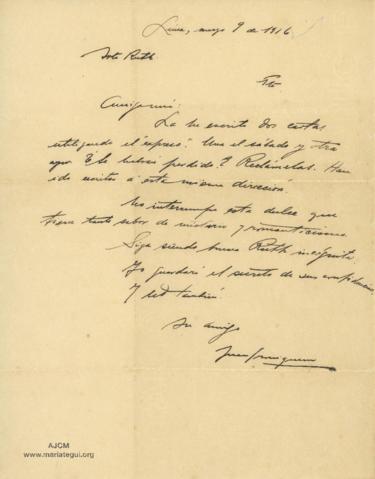 Lima, marzo 9 de 1916
Srta Ruth
Pte
Amiga mía:
La he escrito dos cartas
utilizando el "expreso". Una el sábado y otra
ayer. ¿Se habrán perdido? Reclámelas. Han
ido escritas a esta misma dirección.
No interrumpa esta dulce que
tiene tanto sabor de misterio y romanticismo.
Siga siendo buena Ruth incógnita.
Yo guardaré el secreto de sus confidencias.
Y Ud también.
Su amigo
AJCM
www.mariategui.org